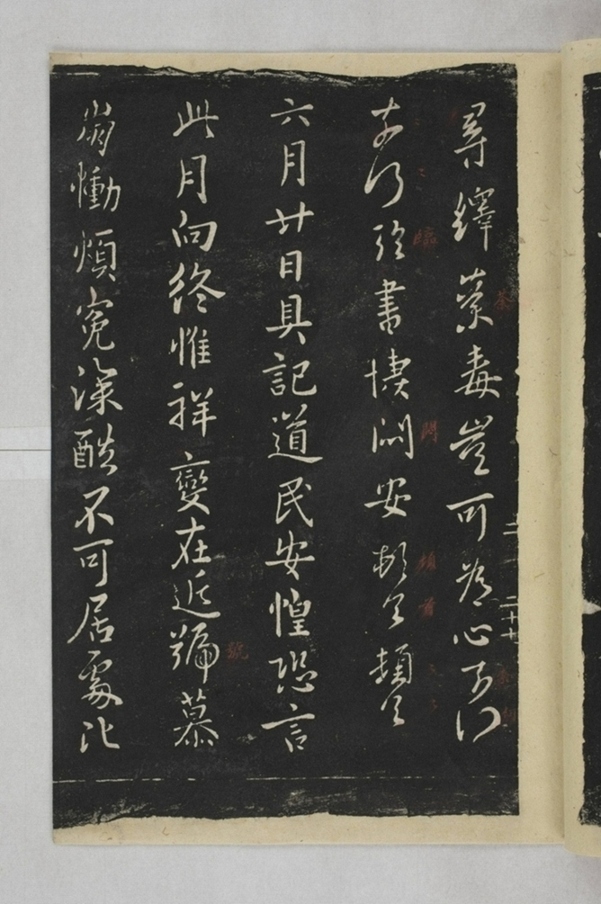 尋繹荼毒豈可為心奈何
奈何臨書悽悶安頓首頓首
六月廿日具記道民安惶恐言
此月向終惟祥變在近號慕
崩慟煩冤深酷不可居處比